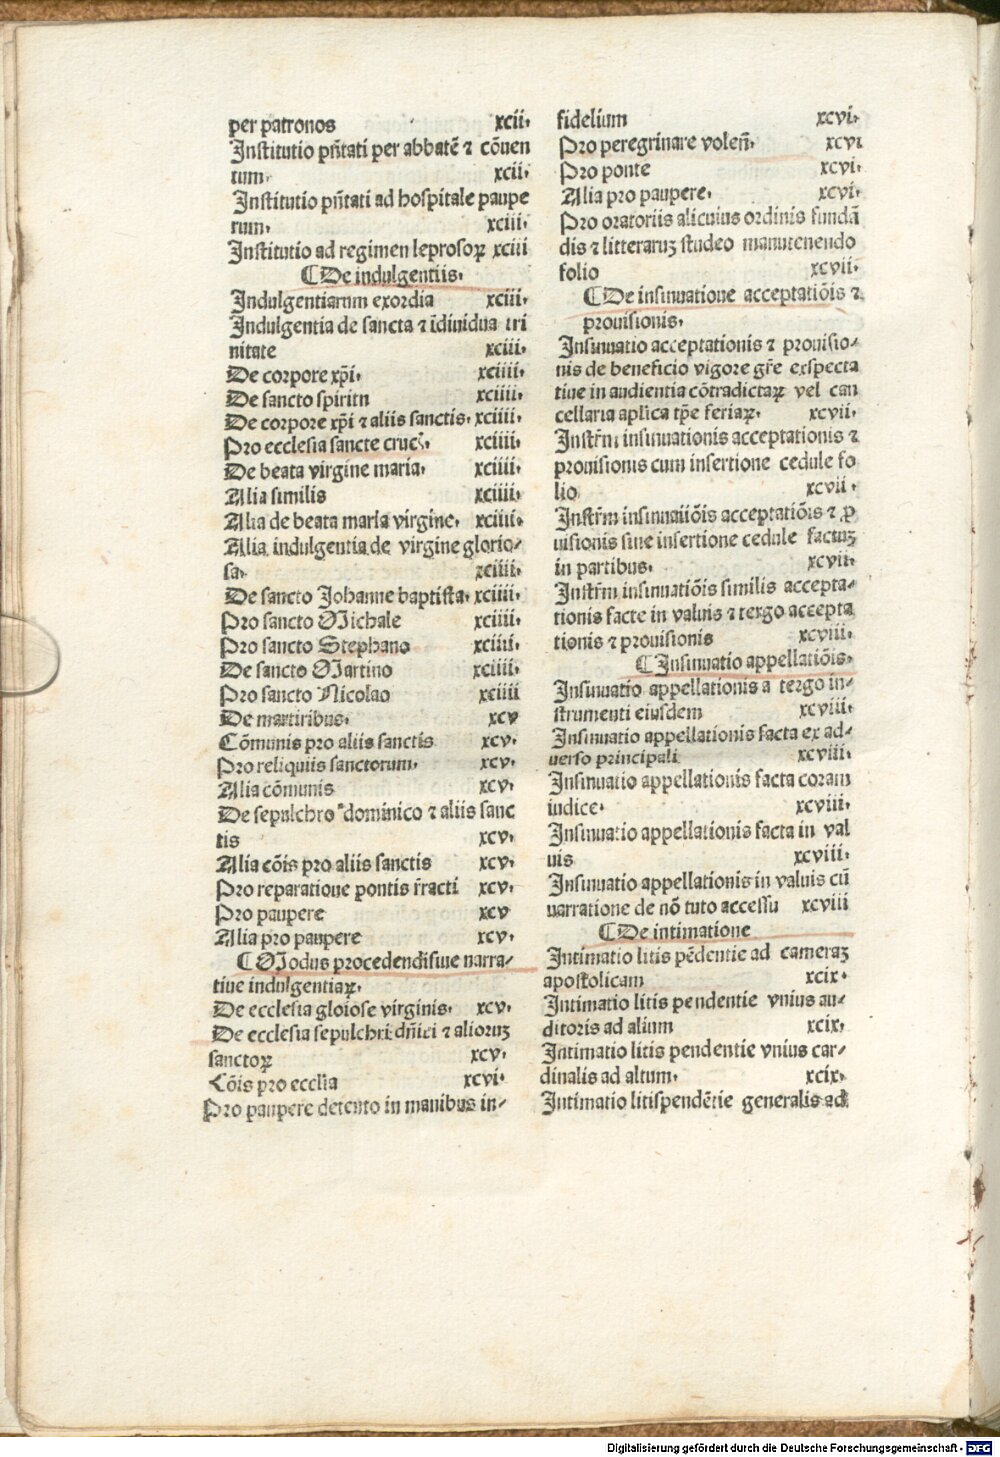 per patronos xcii.
Institutio pñtati per abbatē ⁊ cōuen
tum. xcii.
Institutio pñtati ad hospitale paupe
rum. xciii.
Institutio ad regimen leprosoꝝ xciii
¶ De indulgentiis.
Indulgentiarum exordia xciii.
Indulgentia de sancta ⁊ īdiuidua tri
nitate xciii.
De corpore xp̄i. xciiii.
De sancto spiritu xciiii.
De corpore xp̄i ⁊ aliis sanctis. xciiii.
Pro ecclesia sancte cruc̄. xciiii.
De beata virgine maria. xciiii.
Alia similis xciiii.
Alia de beata maria virgine. xciiii.
Alia indulgentia de virgine glorio⸗
sa. xciiii.
De sancto Johanne baptista. xciiii.
Pro sancto Michale xciiii.
Pro sancto Stephano xciiii.
De sancto Martino xciiii.
Pro sancto Nicolao xciiii
De martiribus. xcv
Cōmunis pro aliis sanctis xcv.
Pro reliquiis sanctorum. xcv.
Alia cōmunis xcv.
De sepulchro dominico ⁊ aliis sanc
tis xcv.
Alia cōis pro aliis sanctis xcv.
Pro reparatioue pontis fracti xcv.
Pro paupere xcv
Alia pro paupere xcv.
¶ Modus procedendi siue narra⸗
tiue indulgentiaꝝ.
De ecclesia gloiose virginis. xcv.
De ecclesia sepulchri dñici ⁊ alioruꝫ
sanctoꝝ xcv.
Cōis pro ecclīa xcvi.
Pro paupere detento in manibus in⸗
fidelium xcvi.
Pro peregrinare voleñ. xcvi
Pro ponte xcvi.
Alia pro paupere. xcvi.
Pro oratoriis alicuius ordinis fundā
dis ⁊ litteraruꝫ studeo manutenendo
folio xcvii.
¶ De insinuatione acceptatiōis ⁊
prouisionis.
Insinuatio acceptationis ⁊ prouisio⸗
nis de beneficio vigore gr̄e exspecta
tiue in audientia cōtradictaꝝ vel can
cellaria aplica tp̄e feriaꝝ. xcvii.
Instr̄m insinuationis acceptationis ⁊
prouisionis cum insertione cedule fo
lio xcvii.
Instr̄m insinuatiōis acceptatiōis ⁊ ꝓ
uisionis siue insertione cedule factuꝫ
in partibus. xcvii.
Instr̄m insinuatiōis similis accepta⸗
tionis facte in valuis ⁊ tergo accepta
tionis ⁊ prouisionis xcviii.
¶ Insinuatio appellatiōis.
Insinuatio appellationis a tergo in⸗
strumenti eiusdem xcviii.
Insinuatio appellationis facta ex ad⸗
uerso principali xcviii.
Insinuatio appellationis facta coram
iudice. xcviii.
Insinuatio appellationis facta in val
uis xcviii.
Insinuatio appellationis in valuis cū
narratione de nō tuto accessu xcviii
¶ De intimatione
Intimatio litis pēdentie ad cameraꝫ
apostolicam xcix.
Intimatio litis pendentie vnius au⸗
ditoris ad alium xcix.
Intimatio litis pendentie vnius car⸗
dinalis ad altum. xcix.
Intimatio litispendētie generalis ad
Digitalisierung gefördert durch die Deutsche Forschungsgemeinschaft - DFG